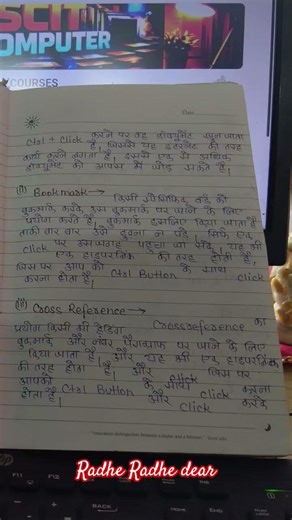 SCIT
COMPUTER
COURSES
Date
Ctrl + Click करने पर वह डॉक्यूमेंट खुल जाता
है, जिससे यह इंटरनेट की तरह
कार्य करने लगता है, इससे एक से अधिक
डॉक्यूमेंट को आपस में जोड़ सकते हैं।
(ii) Bookmark → किसी स्पेसिफिक वर्ड को
बुकमार्क करके उस बुकमार्क पर जाने के लिए
प्रयोग करते हैं, बुकमार्क इसलिए किया जाता है
ताकी बार बार उसे ढूंढना न पड़े, सिर्फ एक
Click पर उस जगह पहुंचा जा सके, यह भी
एक हाइपरलिंक की तरह होती है,
जिस पर आप को Ctrl Button के साथ click
करना होता है।
(iii) Cross Reference → Crossreference का
प्रयोग किसी भी हैडिंग
बुकमार्क और नंबर पैराग्राफ पर जाने के लिए
किया जाता है, और यह भी एक हाइपरलिंक
की तरह होता है, और जिस पर
आपको Ctrl Button के साथ click करना
होता है। और click करके
Click
Radhe Radhe dear
F11
F12
PRT SC
BACK